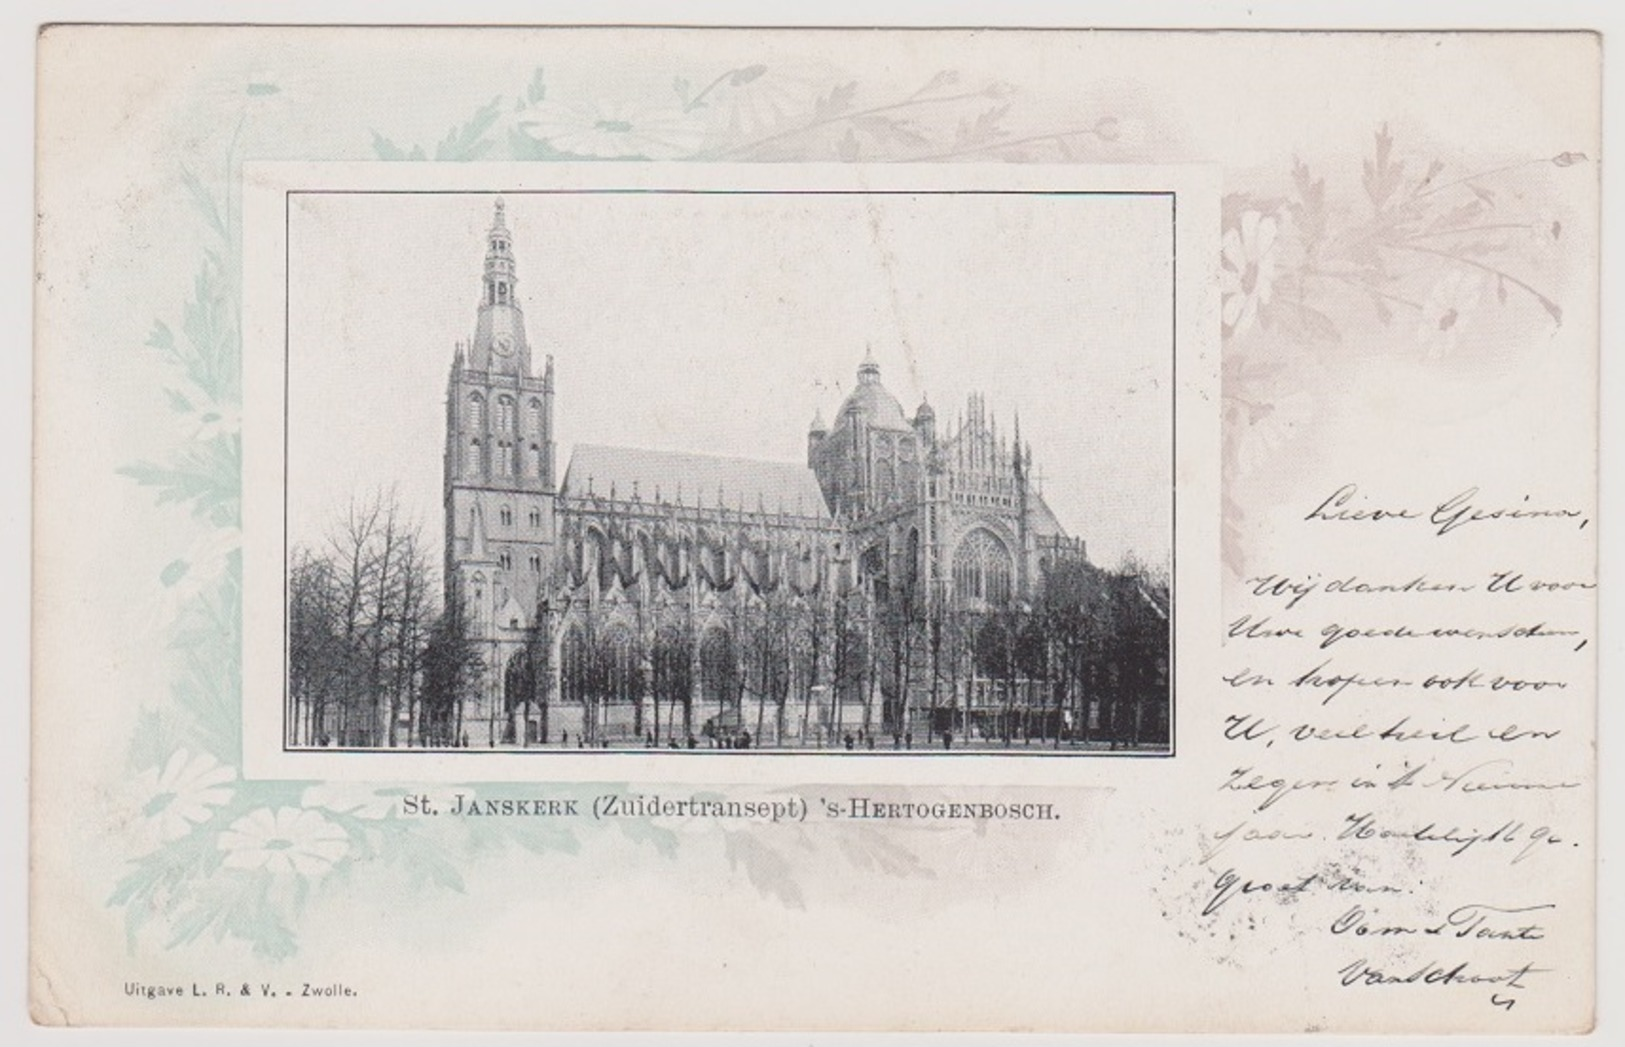 St. JANSKERK (Zuidertransept) 's-HERTOGENBOSCH.
Uitgave L. R. & V. - Zwolle.
Lieve Gesina,
Wij danken U voor
Uwe goede wenschen,
en hopen ook voor
U, veel heil en
Zegen in 't Nieuwe
jaar. Hartelijk ge-
groet van:
Oom & Tante
VanSchoot